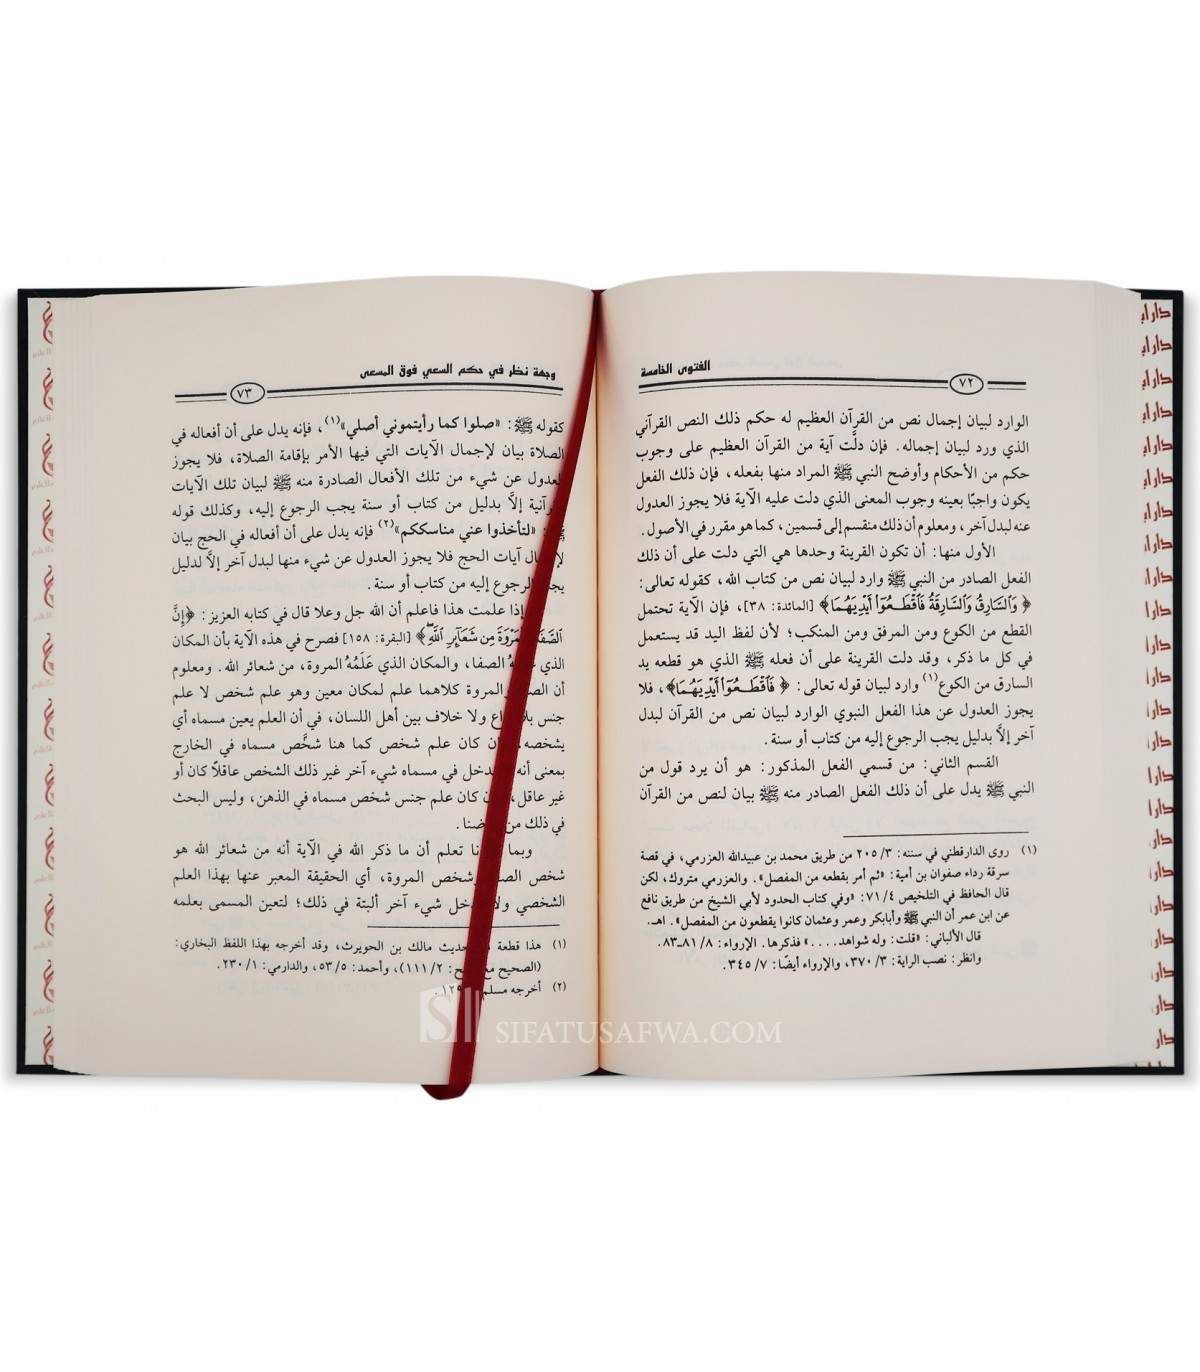 الفتوى الخامسة
٧٢
الوارد لبيان إجمال نص من القرآن العظيم له حكم ذلك النص القرآني
الذي ورد لبيان إجماله. فإن دلَّت آية من القرآن العظيم على وجوب
حكم من الأحكام وأوضح النبي ﷺ المراد منها بفعله، فإن ذلك الفعل
يكون واجبًا بعينه وجوب المعنى الذي دلت عليه الآية فلا يجوز العدول
عنه لبدل آخر، ومعلوم أن ذلك منقسم إلى قسمين، كما هو مقرر في الأصول.
الأول منها: أن تكون القرينة وحدها هي التي دلت على أن ذلك
الفعل الصادر من النبي ﷺ وارد لبيان نص من كتاب الله، كقوله تعالى:
﴿ وَٱلسَّارِقُ وَٱلسَّارِقَةُ فَٱقْطَعُوٓا۟ أَيْدِيَهُمَا﴾ [المائدة: ٣٨]، فإن الآية تحتمل
القطع من الكوع ومن المرفق ومن المنكب؛ لأن لفظ اليد قد يستعمل
في كل ما ذكر، وقد دلت القرينة على أن فعله ﷺ الذي هو قطعه يد
السارق من الكوع(١) وارد لبيان قوله تعالى: ﴿ فَٱقْطَعُوٓا۟ أَيْدِيَهُمَا﴾، فلا
يجوز العدول عن هذا الفعل النبوي الوارد لبيان نص من القرآن لبدل
آخر إلاَّ بدليل يجب الرجوع إليه من كتاب أو سنة.
القسم الثاني: من قسمي الفعل المذكور: هو أن يرد قول من
النبي ﷺ يدل على أن ذلك الفعل الصادر منه ﷺ بيان لنص من القرآن
(١) روى الدارقطني في سننه: ٣/ ٢٠٥ من طريق محمد بن عبيدالله العزرمي، في قصة
سرقة رداء صفوان بن أمية: «ثم أمر بقطعه من المفصل». والعزرمي متروك، لكن
قال الحافظ في التلخيص ٤/ ٧١: «وفي كتاب الحدود لأبي الشيخ من طريق نافع
عن ابن عمر أن النبي ﷺ وأبابكر وعمر وعثمان كانوا يقطعون من المفصل». اهـ.
قال الألباني: «قلت: وله شواهد....» فذكرها. الإرواء: ٨/ ٨١ـ٨٣.
وانظر: نصب الراية: ٣/ ٣٧٠، والإرواء أيضًا: ٧/ ٣٤٥.
وجهة نظر في حكم السعي فوق المسعى
٧٣
كقوله ﷺ: «صلوا كما رأيتموني أصلي»(١)، فإنه يدل على أن أفعاله في
الصلاة بيان لإجمال الآيات التي فيها الأمر بإقامة الصلاة، فلا يجوز
العدول عن شيء من تلك الأفعال الصادرة منه ﷺ لبيان تلك الآيات
القرآنية إلاَّ بدليل من كتاب أو سنة يجب الرجوع إليه، وكذلك قوله
«لتأخذوا عني مناسككم»(٢) فإنه يدل على أن أفعاله في الحج بيان
آيات الحج فلا يجوز العدول عن شيء منها لبدل آخر إلاَّ لدليل
الرجوع إليه من كتاب أو سنة.
إذا علمت هذا فاعلم أن الله جل وعلا قال في كتابه العزيز: ﴿إِنَّ
ٱلصَّفَا وَٱلْمَرْوَةَ مِن شَعَآئِرِ ٱللَّهِۖ﴾ [البقرة: ١٥٨] فصرح في هذه الآية بأن المكان
الذي الصفا، والمكان الذي عَلَمُهُ المروة، من شعائر الله. ومعلوم
أن الصفا والمروة كلاهما علم لمكان معين وهو علم شخص لا علم
جنس بلا ولا خلاف بين أهل اللسان، في أن العلم يعين مسماه أي
يشخصه، كان علم شخص كما هنا شخَّص مسماه في الخارج
بمعنى أنه يدخل في مسماه شيء آخر غير ذلك الشخص عاقلاً كان أو
غير عاقل، كان علم جنس شخص مسماه في الذهن، وليس البحث
في ذلك من
وبما تعلم أن ما ذكر الله في الآية أنه من شعائر الله هو
شخص الصفا وشخص المروة، أي الحقيقة المعبر عنها بهذا العلم
الشخصي ولا يدخل شيء آخر ألبتة في ذلك؛ لتعين المسمى بعلمه
(١) هذا قطعة حديث مالك بن الحويرث، وقد أخرجه بهذا اللفظ البخاري:
(الصحيح مع ٢/ ١١١)، وأحمد: ٥/ ٥٣، والدارمي: ١/ ٢٣٠.
(٢) أخرجه مسلم
SIFATUSAFWA.COM